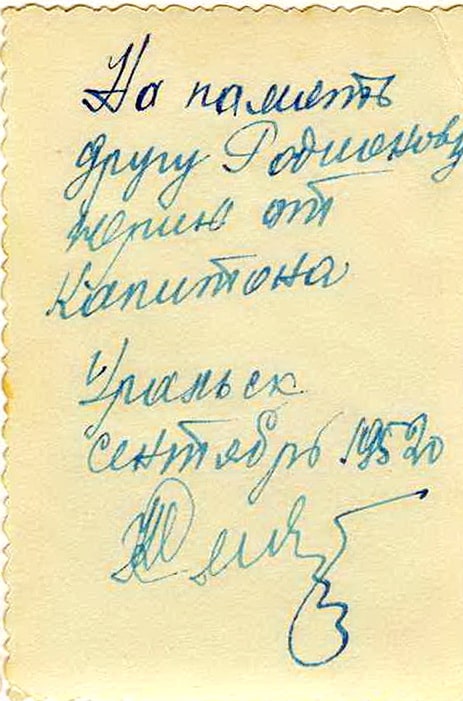 На память
другу Родионову
Юрию от
Капитона
Уральск
сентябрь 1952г